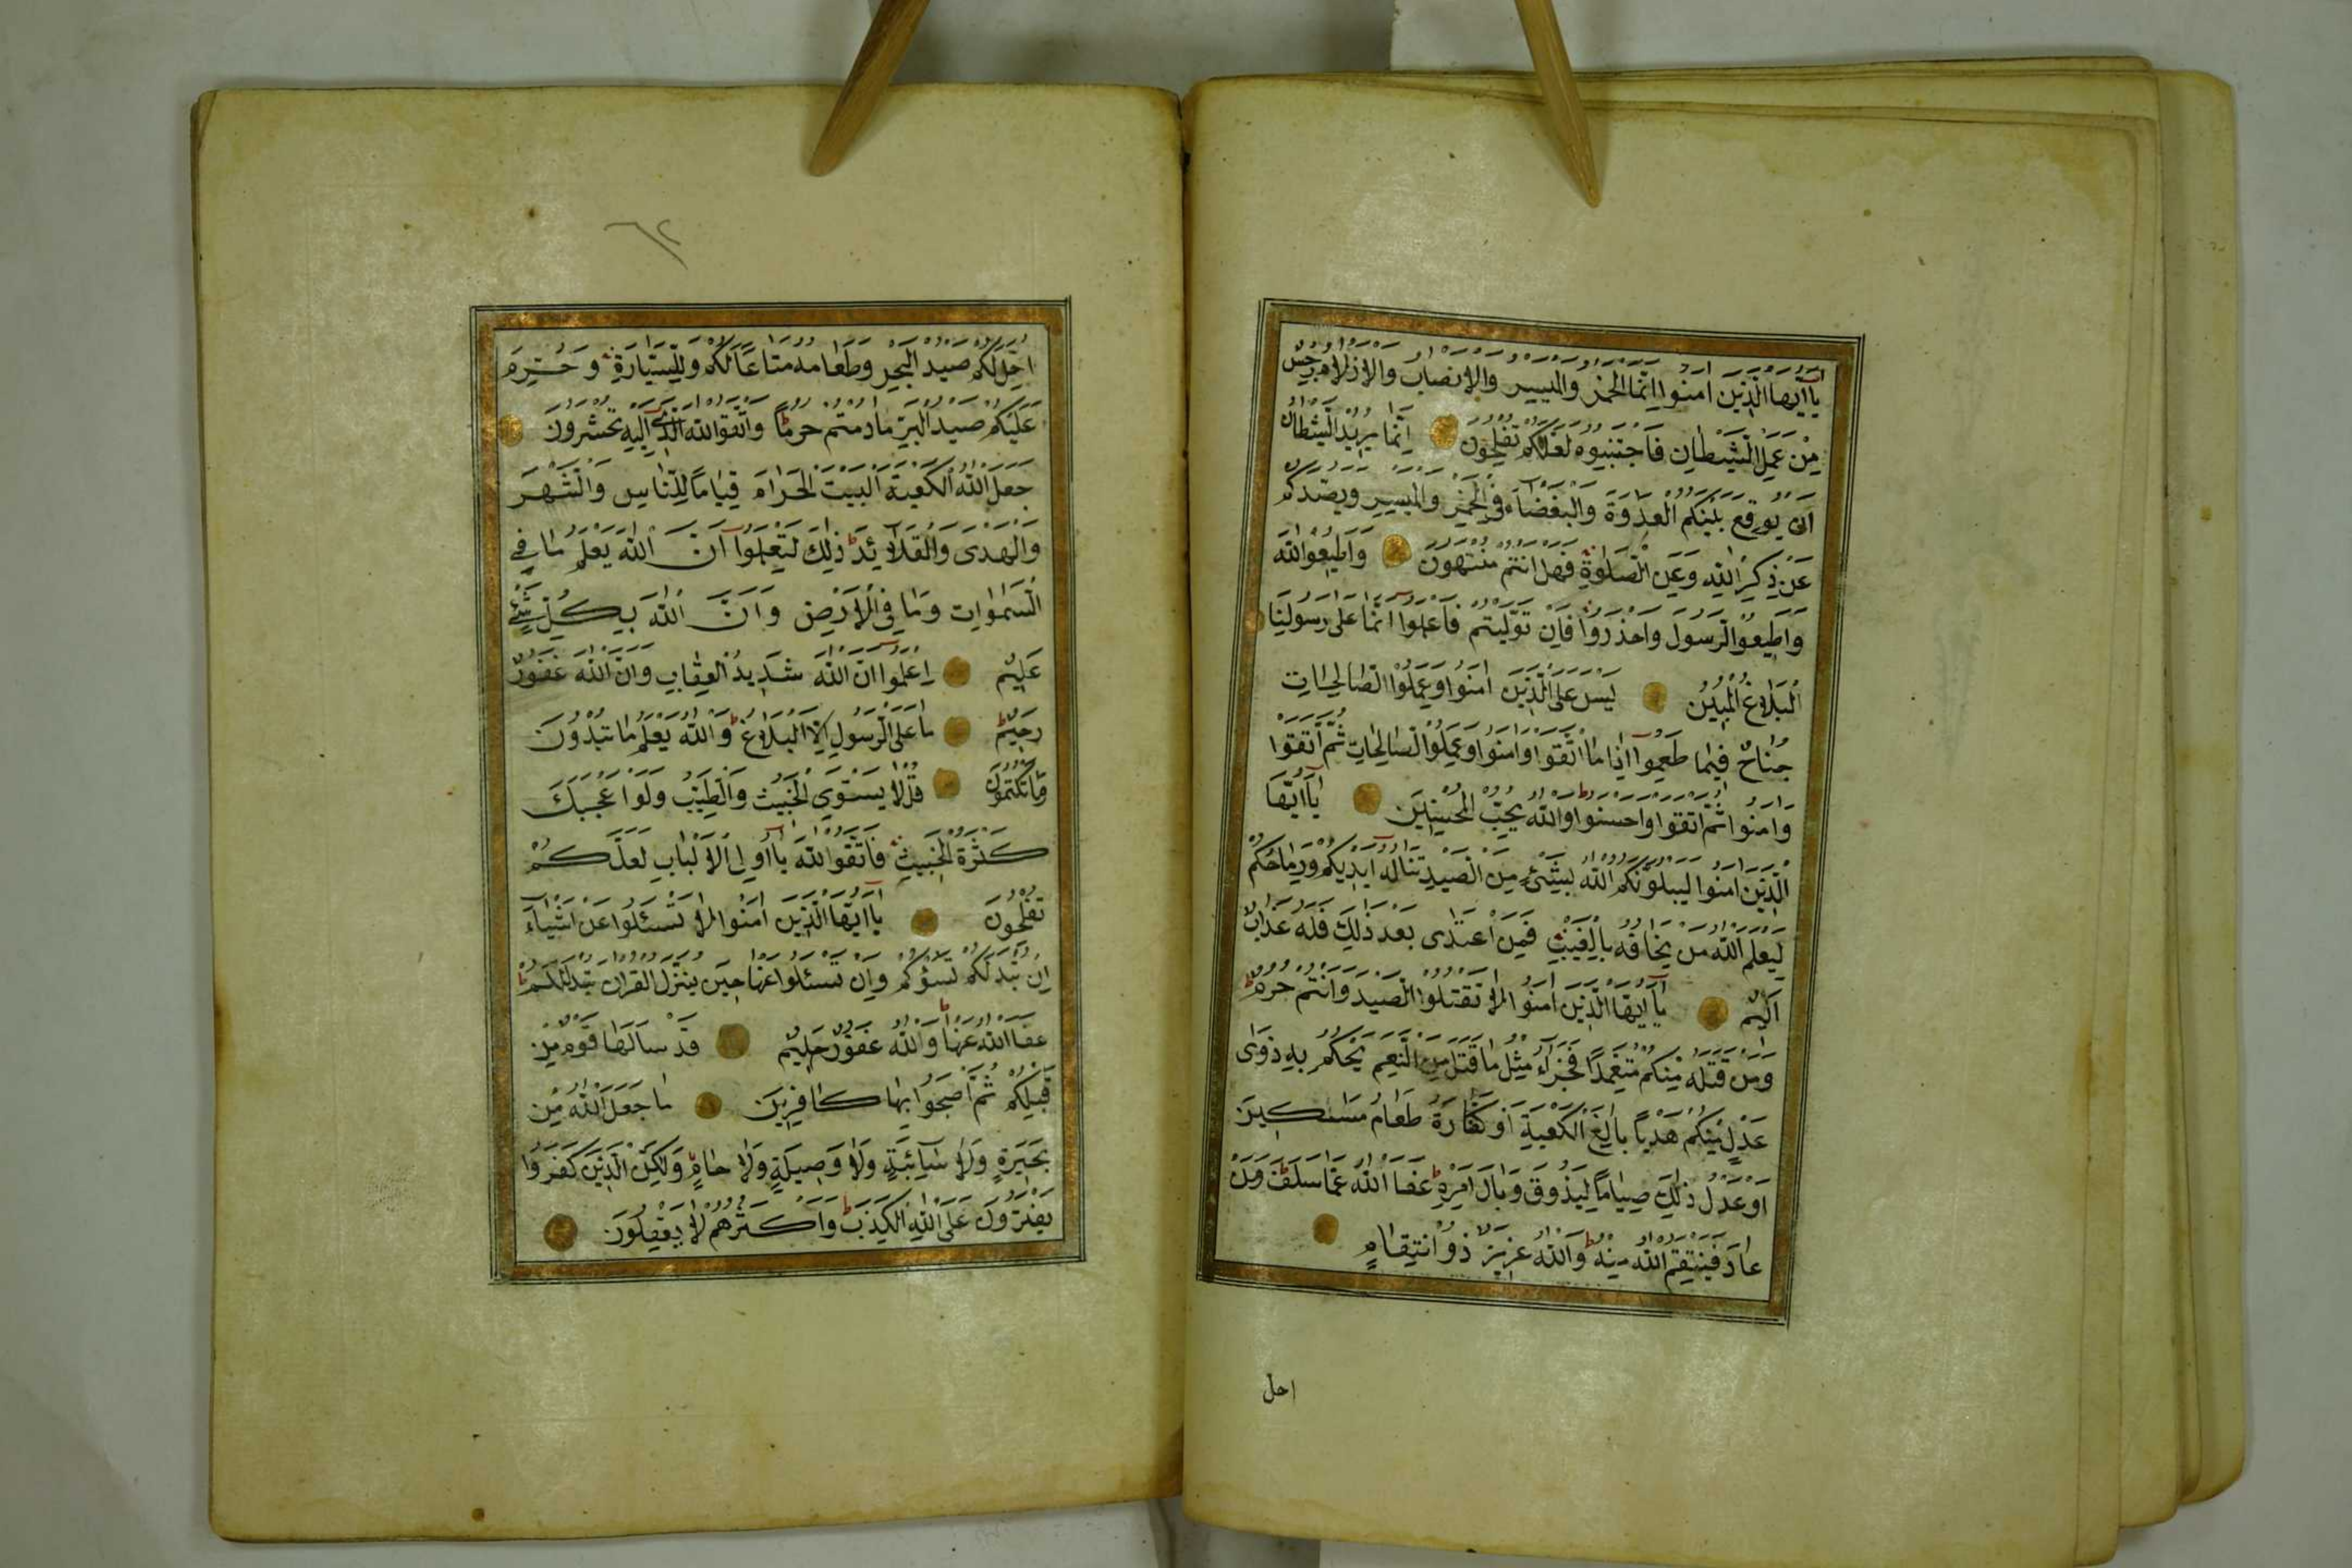 يَا اَيُّهَا الَّذِينَ اٰمَنُوا اِنَّمَا الْخَمْرُ وَالْمَيْسِرُ وَالْاَنْصَابُ وَالْاَزْلَامُ رِجْسٌ
مِنْ عَمَلِ الشَّيْطَانِ فَاجْتَنِبُوهُ لَعَلَّكُمْ تُفْلِحُونَ اِنَّمَا يُرِيدُ الشَّيْطَانُ
اَنْ يُوقِعَ بَيْنَكُمُ الْعَدَاوَةَ وَالْبَغْضَاءَ فِي الْخَمْرِ وَالْمَيْسِرِ وَيَصُدَّكُمْ
عَنْ ذِكْرِ اللّٰهِ وَعَنِ الصَّلٰوةِ فَهَلْ اَنْتُمْ مُنْتَهُونَ وَاَطِيعُوا اللّٰهَ
وَاَطِيعُوا الرَّسُولَ وَاحْذَرُوا فَاِنْ تَوَلَّيْتُمْ فَاعْلَمُوا اَنَّمَا عَلٰى رَسُولِنَا
الْبَلَاغُ الْمُبِينُ لَيْسَ عَلَى الَّذِينَ اٰمَنُوا وَعَمِلُوا الصَّالِحَاتِ
جُنَاحٌ فِيمَا طَعِمُوا اِذَا مَا اتَّقَوْا وَاٰمَنُوا وَعَمِلُوا الصَّالِحَاتِ ثُمَّ اتَّقَوْا
وَاٰمَنُوا ثُمَّ اتَّقَوْا وَاَحْسَنُوا وَاللّٰهُ يُحِبُّ الْمُحْسِنِينَ يَا اَيُّهَا
الَّذِينَ اٰمَنُوا لَيَبْلُوَنَّكُمُ اللّٰهُ بِشَيْءٍ مِنَ الصَّيْدِ تَنَالُهُ اَيْدِيكُمْ وَرِمَاحُكُمْ
لِيَعْلَمَ اللّٰهُ مَنْ يَخَافُهُ بِالْغَيْبِ فَمَنِ اعْتَدٰى بَعْدَ ذٰلِكَ فَلَهُ عَذَابٌ
اَلِيمٌ يَا اَيُّهَا الَّذِينَ اٰمَنُوا لَا تَقْتُلُوا الصَّيْدَ وَاَنْتُمْ حُرُمٌ
وَمَنْ قَتَلَهُ مِنْكُمْ مُتَعَمِّدًا فَجَزَاءٌ مِثْلُ مَا قَتَلَ مِنَ النَّعَمِ يَحْكُمُ بِهِ ذَوَا
عَدْلٍ مِنْكُمْ هَدْيًا بَالِغَ الْكَعْبَةِ اَوْ كَفَّارَةٌ طَعَامُ مَسَاكِينَ
اَوْ عَدْلُ ذٰلِكَ صِيَامًا لِيَذُوقَ وَبَالَ اَمْرِهِ عَفَا اللّٰهُ عَمَّا سَلَفَ وَمَنْ
عَادَ فَيَنْتَقِمُ اللّٰهُ مِنْهُ وَاللّٰهُ عَزِيزٌ ذُو انْتِقَامٍ
احل
٦٢
اُحِلَّ لَكُمْ صَيْدُ الْبَحْرِ وَطَعَامُهُ مَتَاعًا لَكُمْ وَلِلسَّيَّارَةِ وَحُرِّمَ
عَلَيْكُمْ صَيْدُ الْبَرِّ مَا دُمْتُمْ حُرُمًا وَاتَّقُوا اللّٰهَ الَّذِي اِلَيْهِ تُحْشَرُونَ
جَعَلَ اللّٰهُ الْكَعْبَةَ الْبَيْتَ الْحَرَامَ قِيَامًا لِلنَّاسِ وَالشَّهْرَ
وَالْهَدْيَ وَالْقَلَائِدَ ذٰلِكَ لِتَعْلَمُوا اَنَّ اللّٰهَ يَعْلَمُ مَا فِي
السَّمٰوَاتِ وَمَا فِي الْاَرْضِ وَاَنَّ اللّٰهَ بِكُلِّ شَيْءٍ
عَلِيمٌ اِعْلَمُوا اَنَّ اللّٰهَ شَدِيدُ الْعِقَابِ وَاَنَّ اللّٰهَ غَفُورٌ
رَحِيمٌ مَا عَلَى الرَّسُولِ اِلَّا الْبَلَاغُ وَاللّٰهُ يَعْلَمُ مَا تُبْدُونَ
وَمَا تَكْتُمُونَ قُلْ لَا يَسْتَوِي الْخَبِيثُ وَالطَّيِّبُ وَلَوْ اَعْجَبَكَ
كَثْرَةُ الْخَبِيثِ فَاتَّقُوا اللّٰهَ يَا اُولِي الْاَلْبَابِ لَعَلَّكُمْ
تُفْلِحُونَ يَا اَيُّهَا الَّذِينَ اٰمَنُوا لَا تَسْئَلُوا عَنْ اَشْيَاءَ
اِنْ تُبْدَ لَكُمْ تَسُؤْكُمْ وَاِنْ تَسْئَلُوا عَنْهَا حِينَ يُنَزَّلُ الْقُرْاٰنُ تُبْدَ لَكُمْ
عَفَا اللّٰهُ عَنْهَا وَاللّٰهُ غَفُورٌ حَلِيمٌ قَدْ سَاَلَهَا قَوْمٌ مِنْ
قَبْلِكُمْ ثُمَّ اَصْبَحُوا بِهَا كَافِرِينَ مَا جَعَلَ اللّٰهُ مِنْ
بَحِيرَةٍ وَلَا سَائِبَةٍ وَلَا وَصِيلَةٍ وَلَا حَامٍ وَلٰكِنَّ الَّذِينَ كَفَرُوا
يَفْتَرُونَ عَلَى اللّٰهِ الْكَذِبَ وَاَكْثَرُهُمْ لَا يَعْقِلُونَ